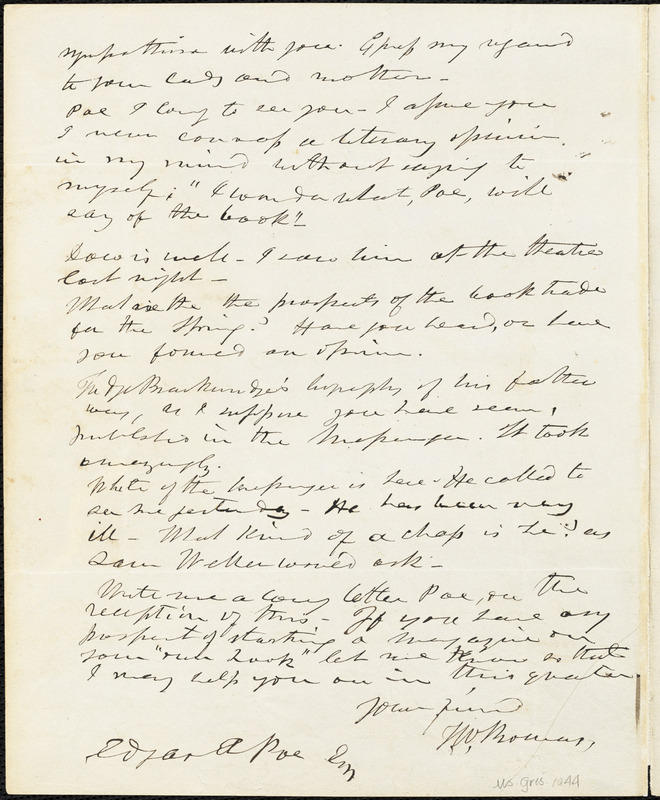 sympathise with you. Express my regard
to your lady and mother –
Poe I long to see you – I assure you
I never con over a literary opinion
in my mind without saying to
myself; "I wonder what, Poe, will
say of the book" –
Dow is well – I saw him at the theatre
last night –
What are the the prospects of the book trade
for the Spring? Have you heard, or have
you formed an opinion.
Judge Brackenridge's biography of his father
was, as I suppose you have seen,
publish'd in the Messenger. It took
amazingly.
White of the Messenger is here. He called to
see me yesterday – He has been very
ill – What kind of a chap is he? as
Sam Weller would ask –
Write me a long letter Poe, on the
reception of this – If you have any
prospect of starting a magazine on
your "own hook" let me know so that
I may help you on in this quarter
Your friend
F W Thomas,
Edgar A Poe Esq
Ms. Gris. 1044